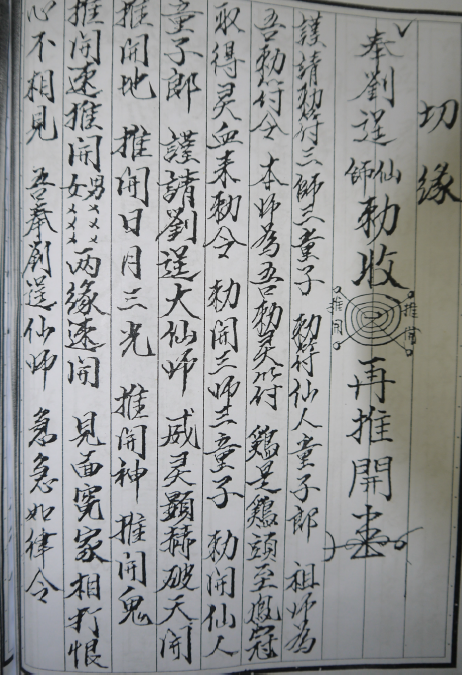 切緣
奉劉逞仙師勅收 推開 推開 再推開
謹請勅符三師三童子 勅符仙人童子郎 祖师為
吾勅符令 本师為吾勅灵符 鷄是鷄頭至鳳冠
取得灵血来勅令 勅開三师三童子 勅開仙人
童子郎 謹請劉逞大仙师 威灵顯赫破天開
推開地 推開日月三光 推開神 推開鬼
推開速推開男女××× 两缘速開 見面寃家相打恨
心不相見 吾奉劉逞仙师 急急如律令